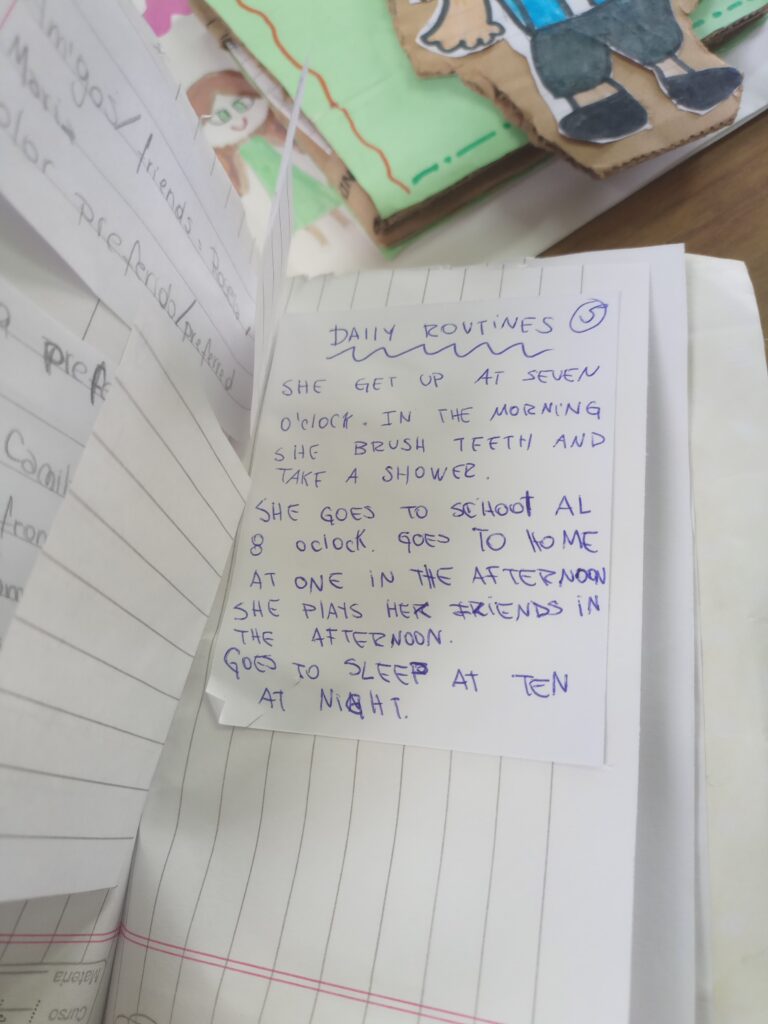 Amigos/friends: 
Maria
color preferido/preferred
Camil
from
DAILY ROUTINES 5
SHE GET UP AT SEVEN
O'CLOCK. IN THE MORNING
SHE BRUSH TEETH AND
TAKE A SHOWER.
SHE GOES TO SCHOOL AL
8 oclock. GOES TO HOME
AT ONE IN THE AFTERNOON
SHE PLAYS HER FRIENDS IN
THE AFTERNOON.
GOES TO SLEEP AT TEN
AT NIGHT.
Materia
Curso